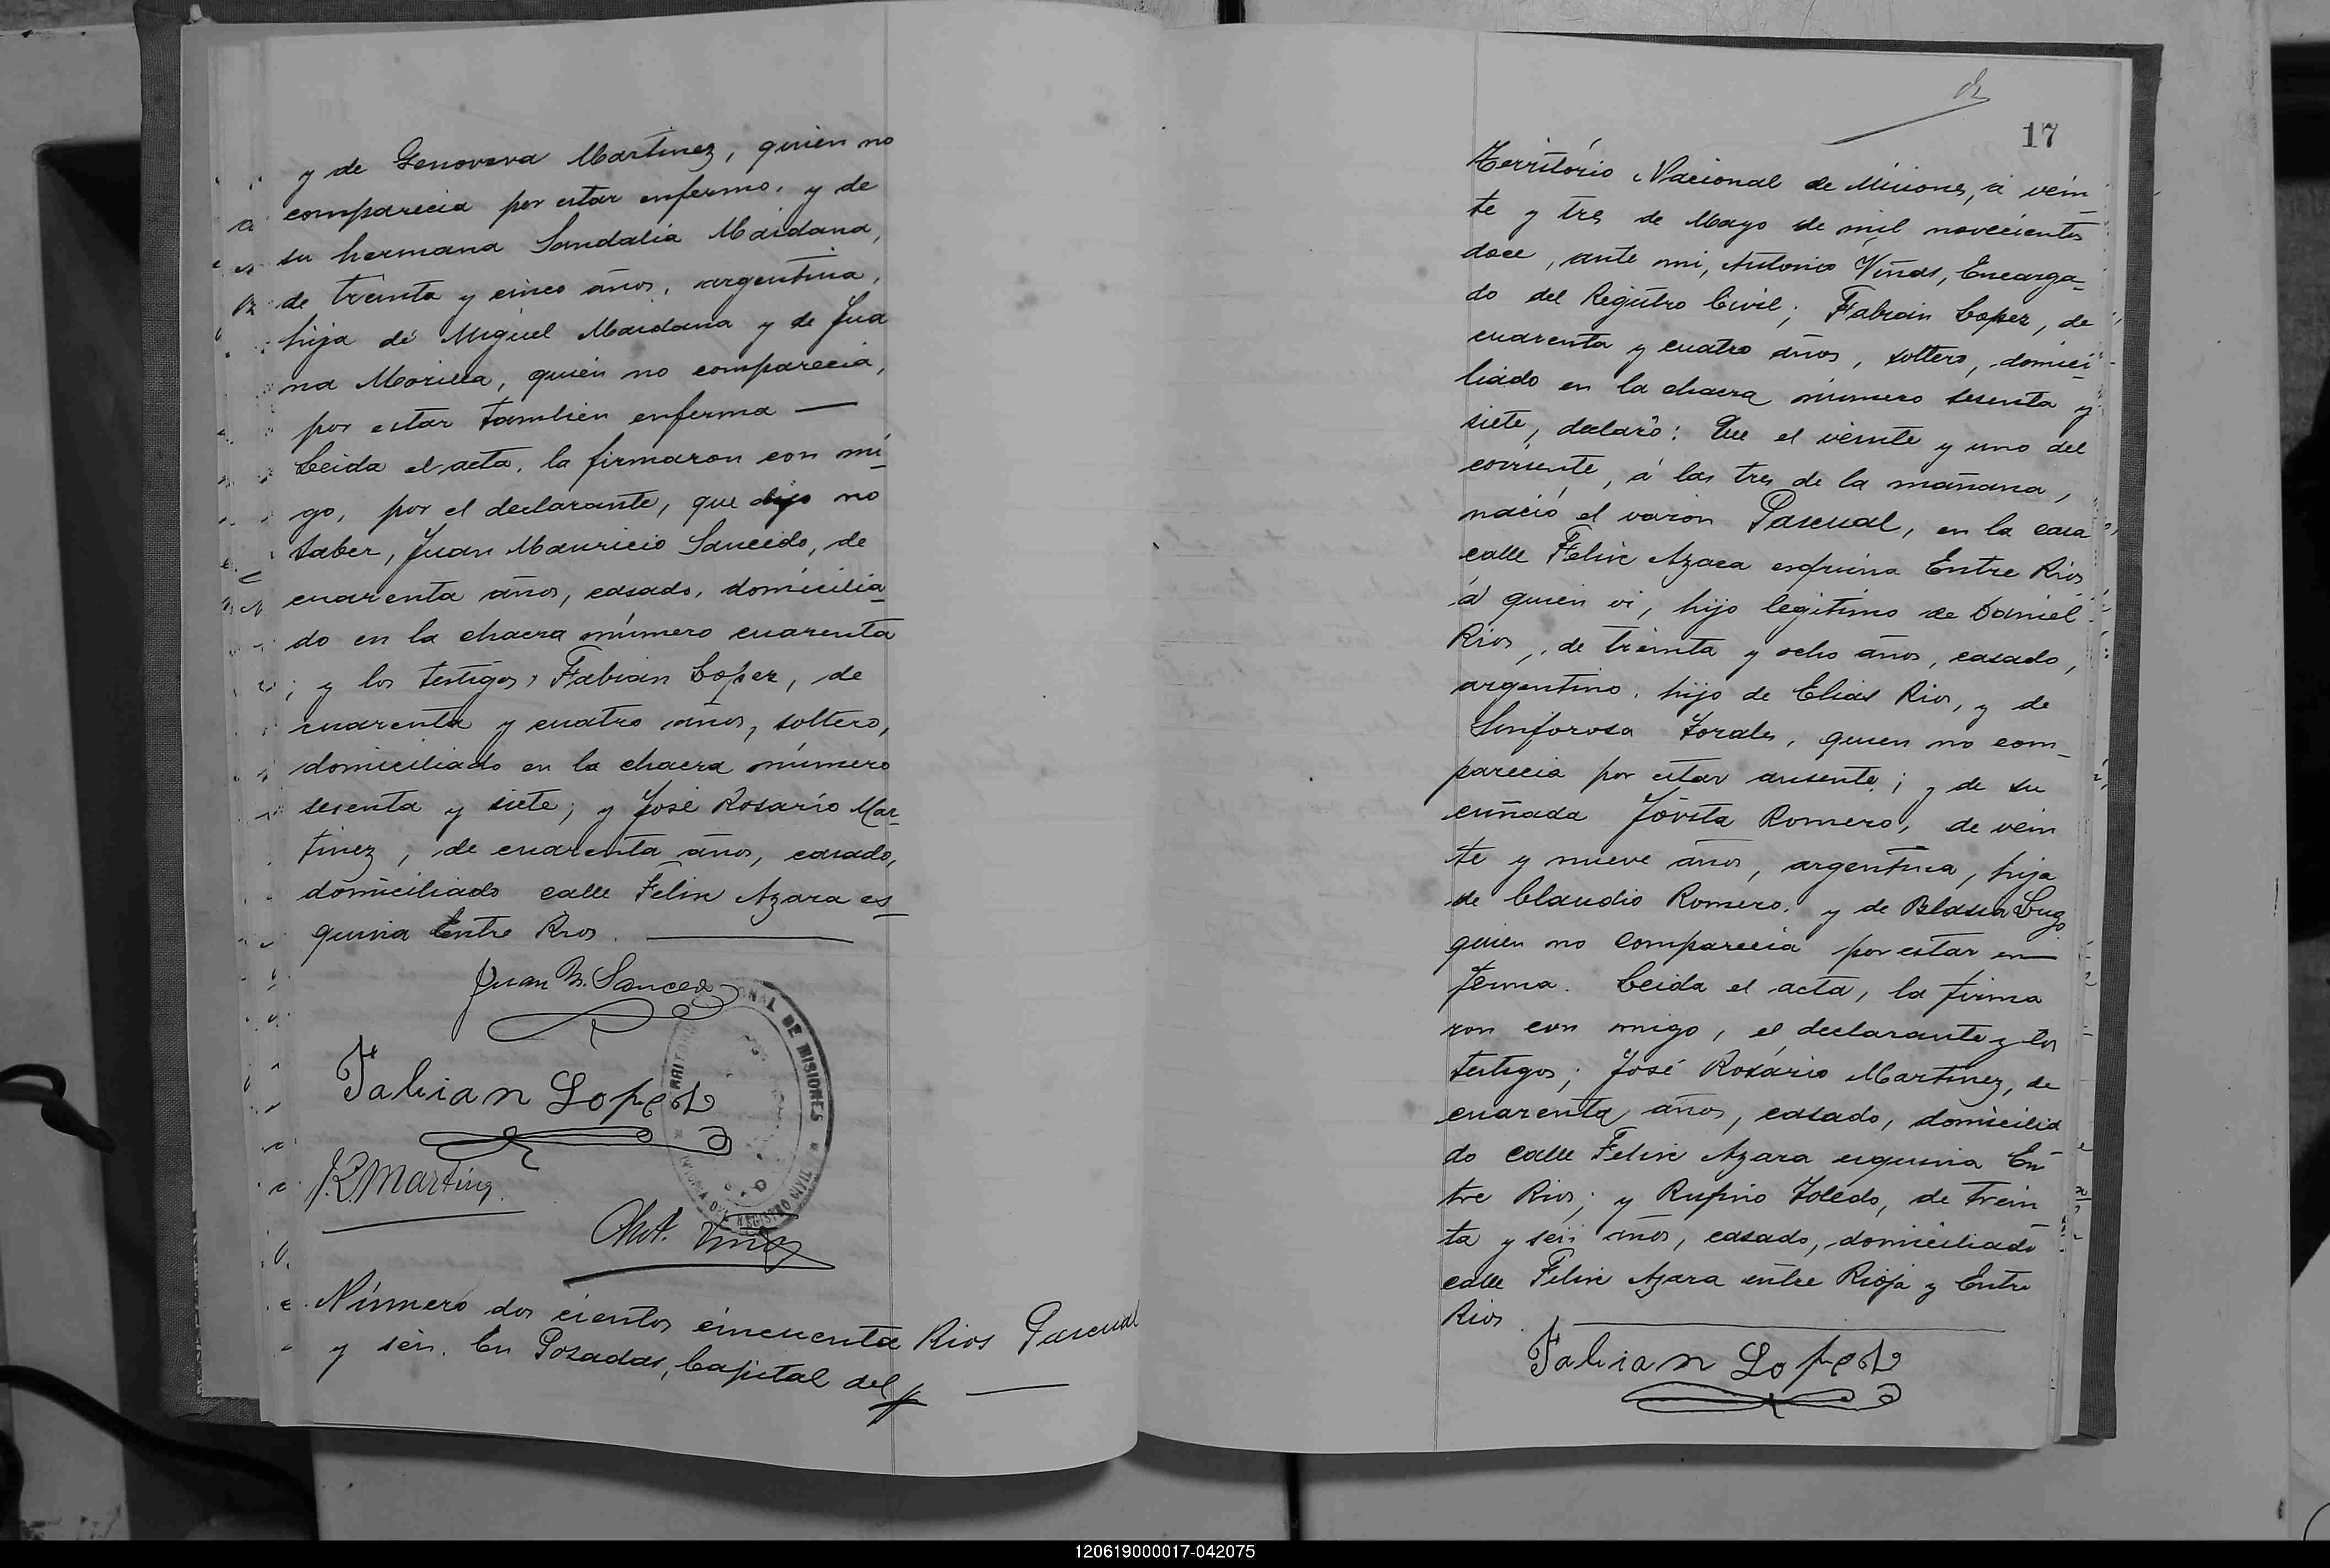 y de Genoveva Martinez, quien no
comparecia por estar enfermo, y de
su hermana Sandalia Maidana,
de treinta y cinco años, argentina,
hija de Miguel Maidana y de Jua
na Morilla, quien no comparecia,
por estar tambien enferma —
Leida el acta, la firmaron con mi
go, por el declarante, que dijo no
saber, Juan Mauricio Saucedo, de
cuarenta años, casado, domicilia
do en la chacra número cuarenta
; y los testigos, Fabian Lopez, de
cuarenta y cuatro años, soltero,
domiciliado en la chacra número
sesenta y siete; y José Rosario Mar-
tinez, de cuarenta años, casado,
domiciliado calle Felix Azara es
quina Entre Rios. —
Juan M. Sauced
Fabian Lopez
J.R. Martinz
Ant. Viñas
NAL DE MISIONES
REGISTRO CIVIL
Número dos cientos cincuenta
y seis. En Posadas, Capital del
Rios Pascual
17
Territorio Nacional de Misiones, á vein
te y tres de Mayo de mil novecientos
doce, ante mi, Antonio Viñas, Encarga-
do del Registro Civil; Fabian Lopez, de
cuarenta y cuatro años, soltero, domici
liado en la chacra número sesenta y
siete, declaró: Que el veinte y uno del
corriente, á las tres de la mañana,
nació el varon Pascual, en la casa
calle Felix Azara esquina Entre Rios
á quien vi, hijo legitimo de Daniel
Rios, de treinta y ocho años, casado,
argentino, hijo de Elias Rios, y de
Sinforosa Zorales, quien no com-
parecia por estar ausente; y de su
cuñada Jovita Romero, de vein
te y nueve años, argentina, hija
de Claudio Romero, y de Blasia Lugo
quien no comparecia por estar en
ferma. Leida el acta, la firma
ron con migo, el declarante y los
testigos; José Rosário Martinez, de
cuarenta años, casado, domicilia
do calle Felix Azara esquina En
tre Rios; y Rufino Toledo, de trein
ta y seis años, casado, domiciliado
calle Felix Azara entre Rioja y Entre
Rios
Fabian Lopez
120619000017-042075